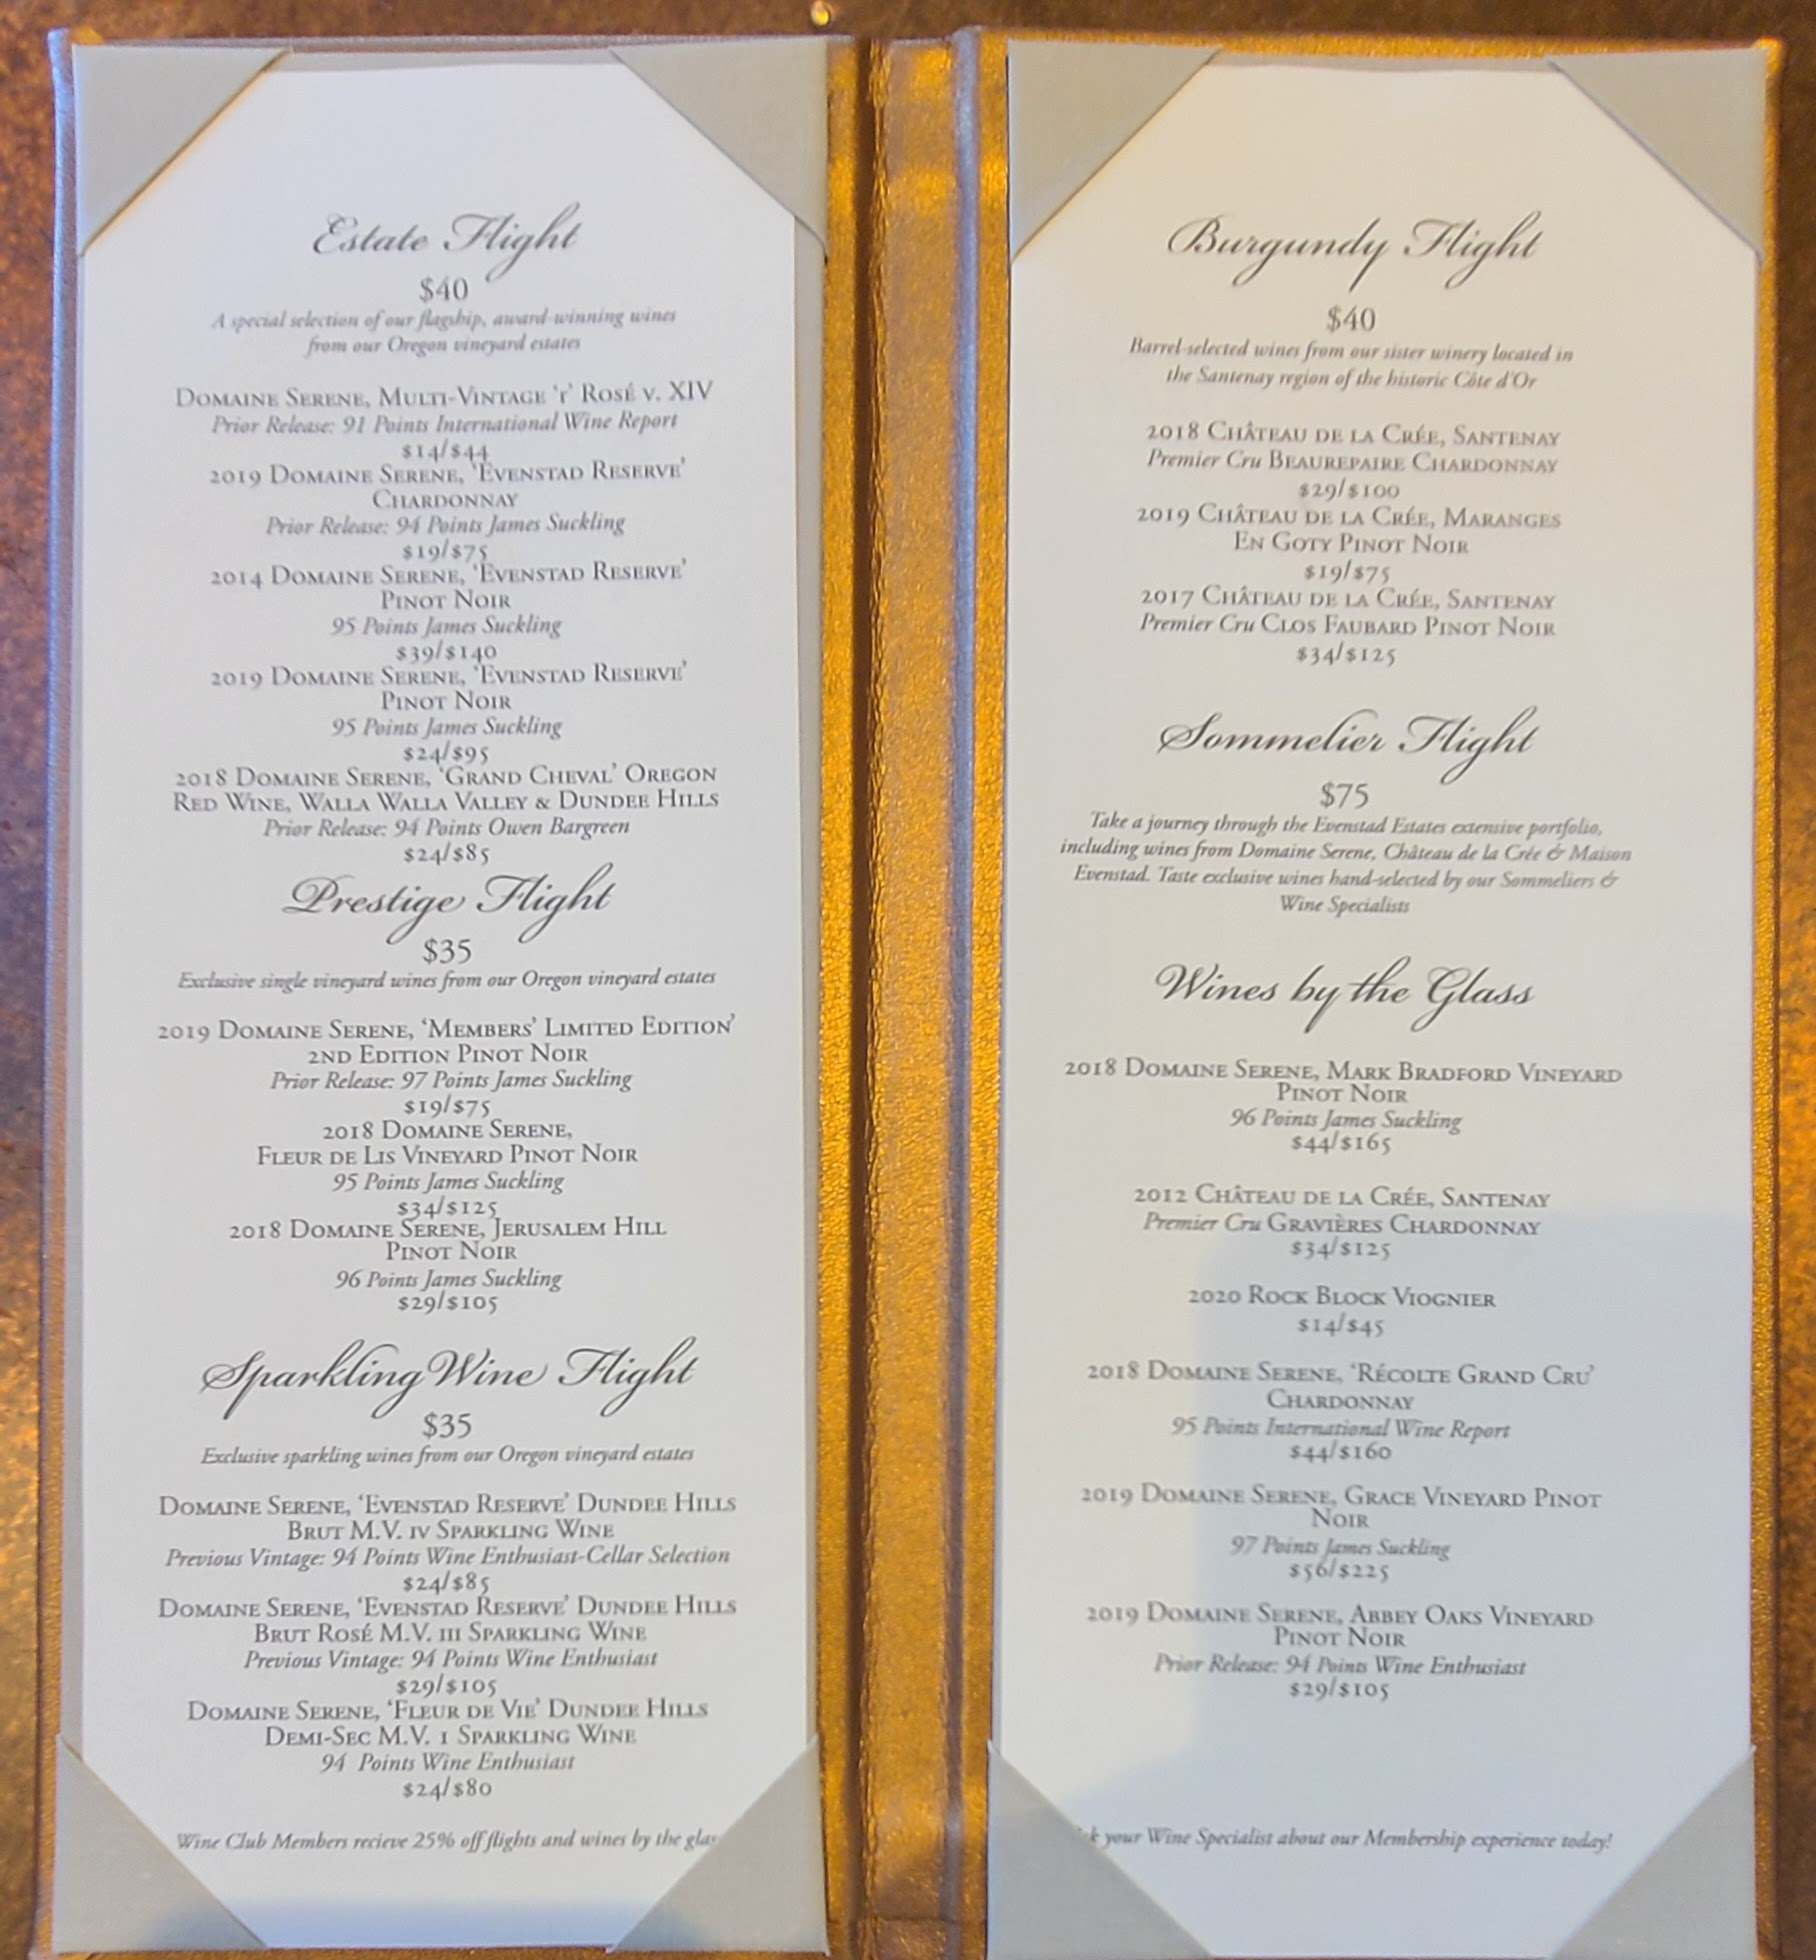 Estate Flight
$40
A special selection of our flagship, award-winning wines
from our Oregon vineyard estates
Domaine Serene, Multi-Vintage ‘r’ Rosé v. XIV
Prior Release: 91 Points International Wine Report
$14/$44
2019 Domaine Serene, ‘Evenstad Reserve’
Chardonnay
Prior Release: 94 Points James Suckling
$19/$75
2014 Domaine Serene, ‘Evenstad Reserve’
Pinot Noir
95 Points James Suckling
$39/$140
2019 Domaine Serene, ‘Evenstad Reserve’
Pinot Noir
95 Points James Suckling
$24/$95
2018 Domaine Serene, ‘Grand Cheval’ Oregon
Red Wine, Walla Walla Valley & Dundee Hills
Prior Release: 94 Points Owen Bargreen
$24/$85
Prestige Flight
$35
Exclusive single vineyard wines from our Oregon vineyard estates
2019 Domaine Serene, ‘Members’ Limited Edition’
2nd Edition Pinot Noir
Prior Release: 97 Points James Suckling
$19/$75
2018 Domaine Serene,
Fleur de Lis Vineyard Pinot Noir
95 Points James Suckling
$34/$125
2018 Domaine Serene, Jerusalem Hill
Pinot Noir
96 Points James Suckling
$29/$105
Sparkling Wine Flight
$35
Exclusive sparkling wines from our Oregon vineyard estates
Domaine Serene, ‘Evenstad Reserve’ Dundee Hills
Brut M.V. iv Sparkling Wine
Previous Vintage: 94 Points Wine Enthusiast-Cellar Selection
$24/$85
Domaine Serene, ‘Evenstad Reserve’ Dundee Hills
Brut Rosé M.V. iii Sparkling Wine
Previous Vintage: 94 Points Wine Enthusiast
$29/$105
Domaine Serene, ‘Fleur de Vie’ Dundee Hills
Demi-Sec M.V. 1 Sparkling Wine
94 Points Wine Enthusiast
$24/$80
Wine Club Members recieve 25% off flights and wines by the
Burgundy Flight
$40
Barrel-selected wines from our sister winery located in
the Santenay region of the historic Côte d'Or
2018 Château de la Crée, Santenay
Premier Cru Beaurepaire Chardonnay
$29/$100
2019 Château de la Crée, Maranges
En Goty Pinot Noir
$19/$75
2017 Château de la Crée, Santenay
Premier Cru Clos Faubard Pinot Noir
$34/$125
Sommelier Flight
$75
Take a journey through the Evenstad Estates extensive portfolio,
including wines from Domaine Serene, Château de la Crée & Maison
Evenstad. Taste exclusive wines hand-selected by our Sommeliers &
Wine Specialists
Wines by the Glass
2018 Domaine Serene, Mark Bradford Vineyard
Pinot Noir
96 Points James Suckling
$44/$165
2012 Château de la Crée, Santenay
Premier Cru Gravières Chardonnay
$34/$125
2020 Rock Block Viognier
$14/$45
2018 Domaine Serene, ‘Récolte Grand Cru’
Chardonnay
95 Points International Wine Report
$44/$160
2019 Domaine Serene, Grace Vineyard Pinot
Noir
97 Points James Suckling
$56/$225
2019 Domaine Serene, Abbey Oaks Vineyard
Pinot Noir
Prior Release: 94 Points Wine Enthusiast
$29/$105
your Wine Specialist about our Membership experience today!